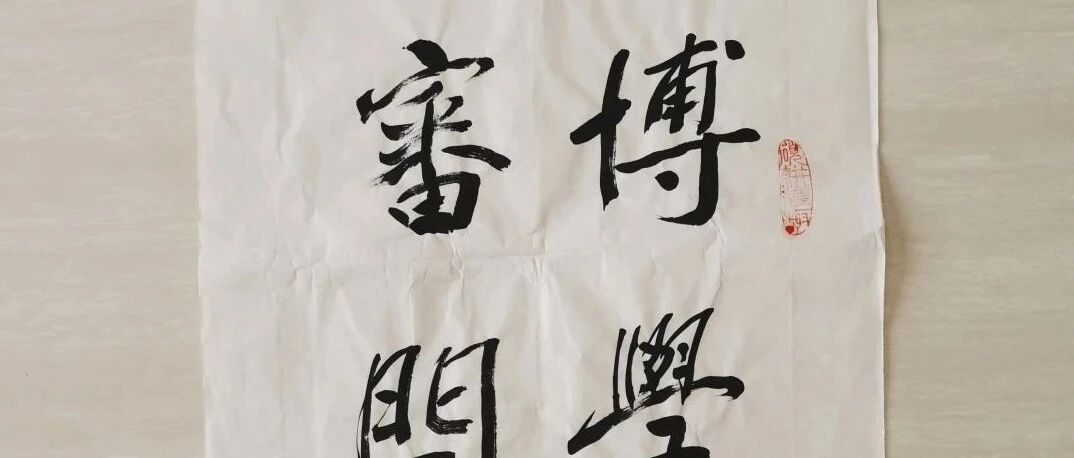 博學
審問